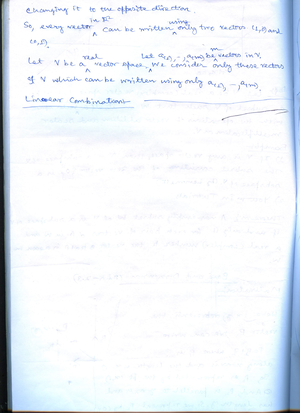 changing it to the opposite direction.
in ℝ² using
So, every vector ‸ can be written ‸ only two vectors (1,0) and
(0,1).
real Let a(1), -, a(m) be m vectors in V.
Let V be a ‸ vector space. ‸ We consider only those vectors
of V which can be written using only a(1), -, a(m).
Linear Combinations